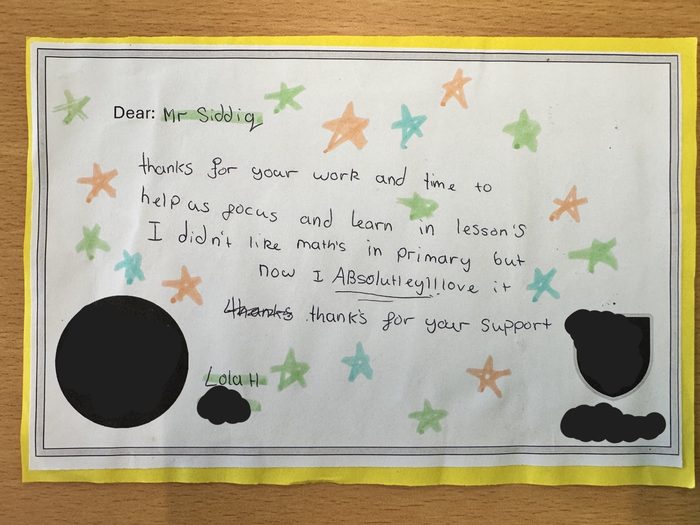 Dear: Mr Siddiq
thanks for your work and time to
help us focus and learn in lesson's
I didn't like math's in primary but
now I ABsolutley!!! love it
thanks thank's for your support
Lola H